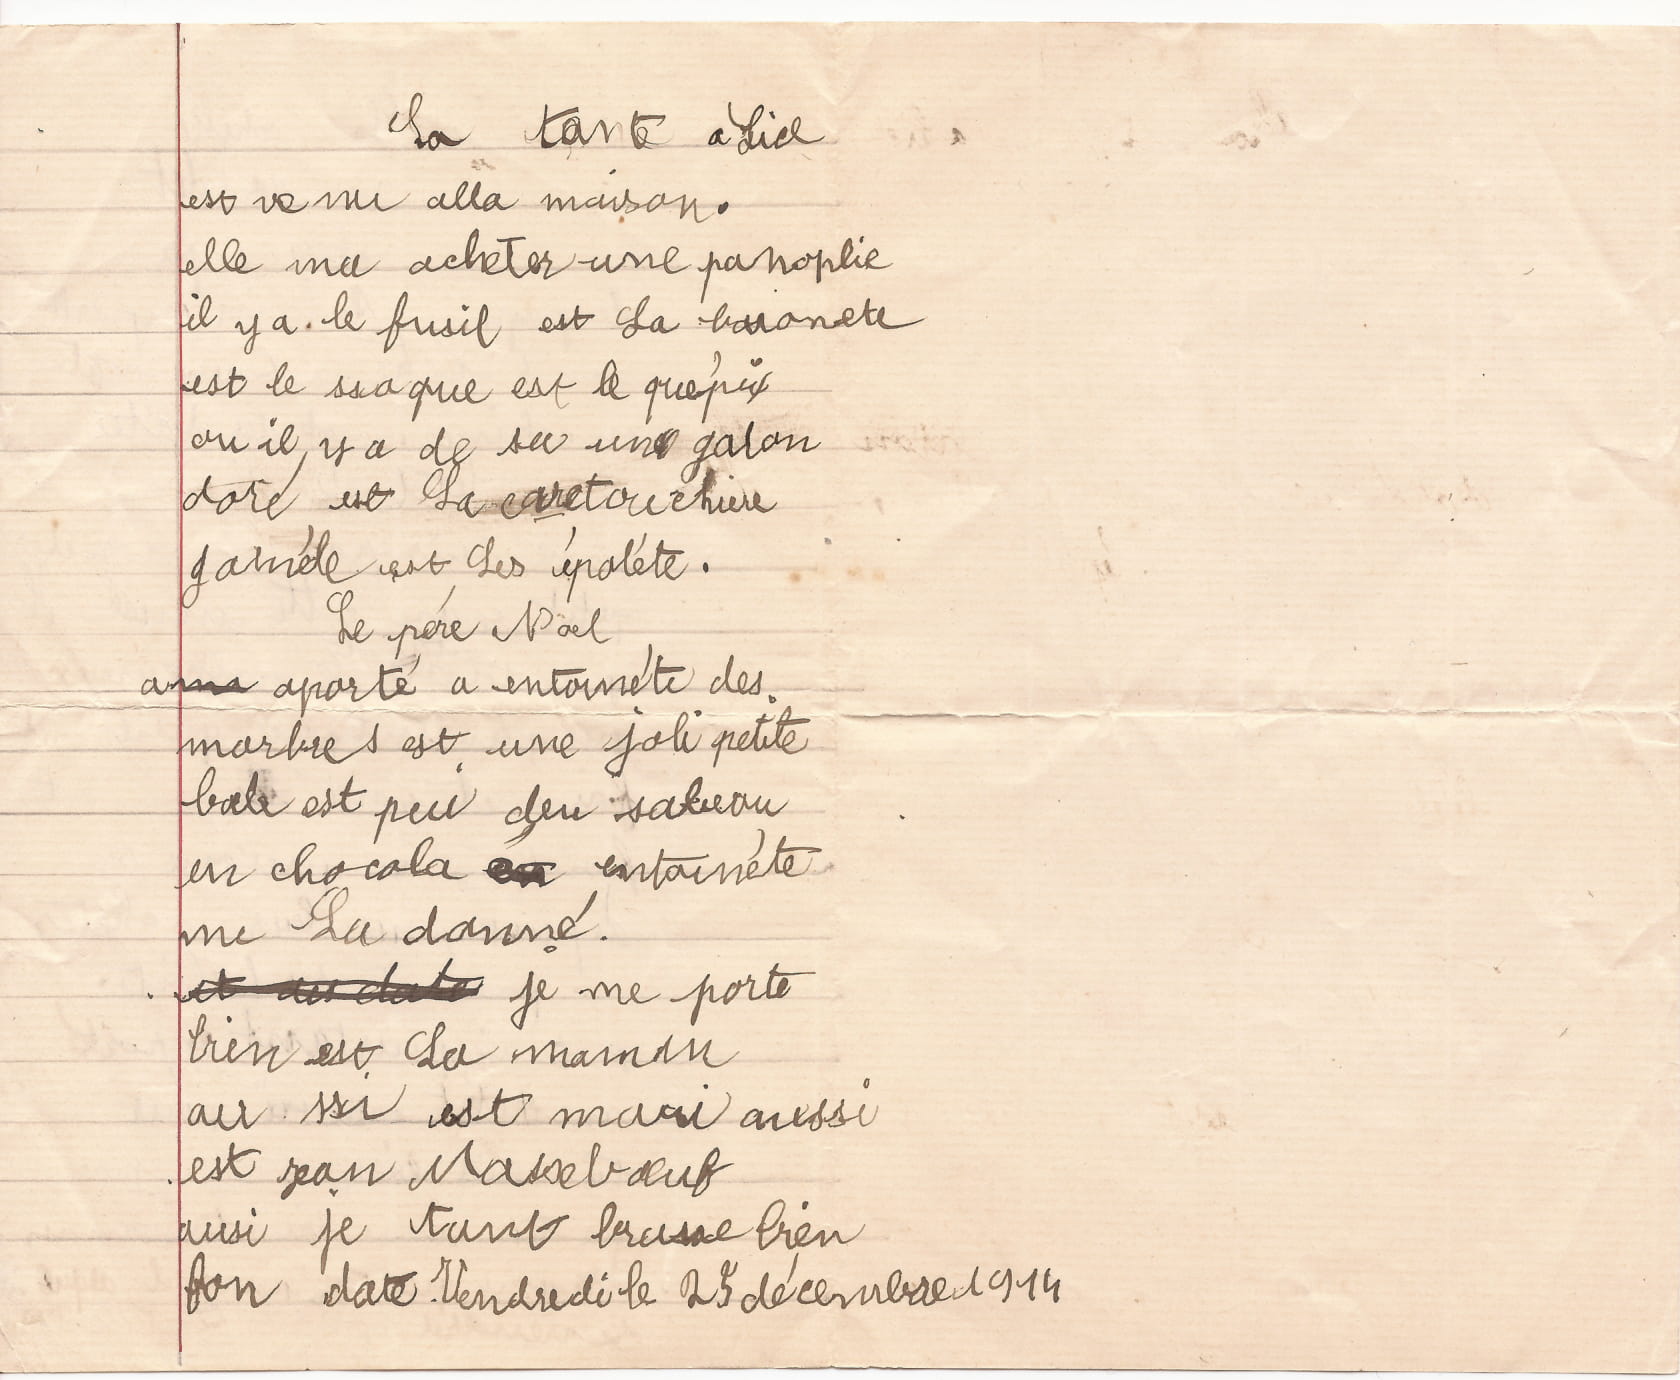 La tante aLice
est ve nu alla maison.
elle ma acheter une panoplie
il y a. le fusil est La baionete
est le ssaque est le quépix
ou il y a de su une galon
doré est La caretouchiere
gamèle est Les épolète.
Le pére Noel
a aporté a entoinéte des
marbres est une joli petite
bale est pui deu sabeau
en chocola entoinéte
me La donné.
et du date je me porte
bien est La maman
au ssi est mari aussi
est jean Massebœuf
ausi je tant brasse bien
fon date Vendredi le 25 décembre 1914